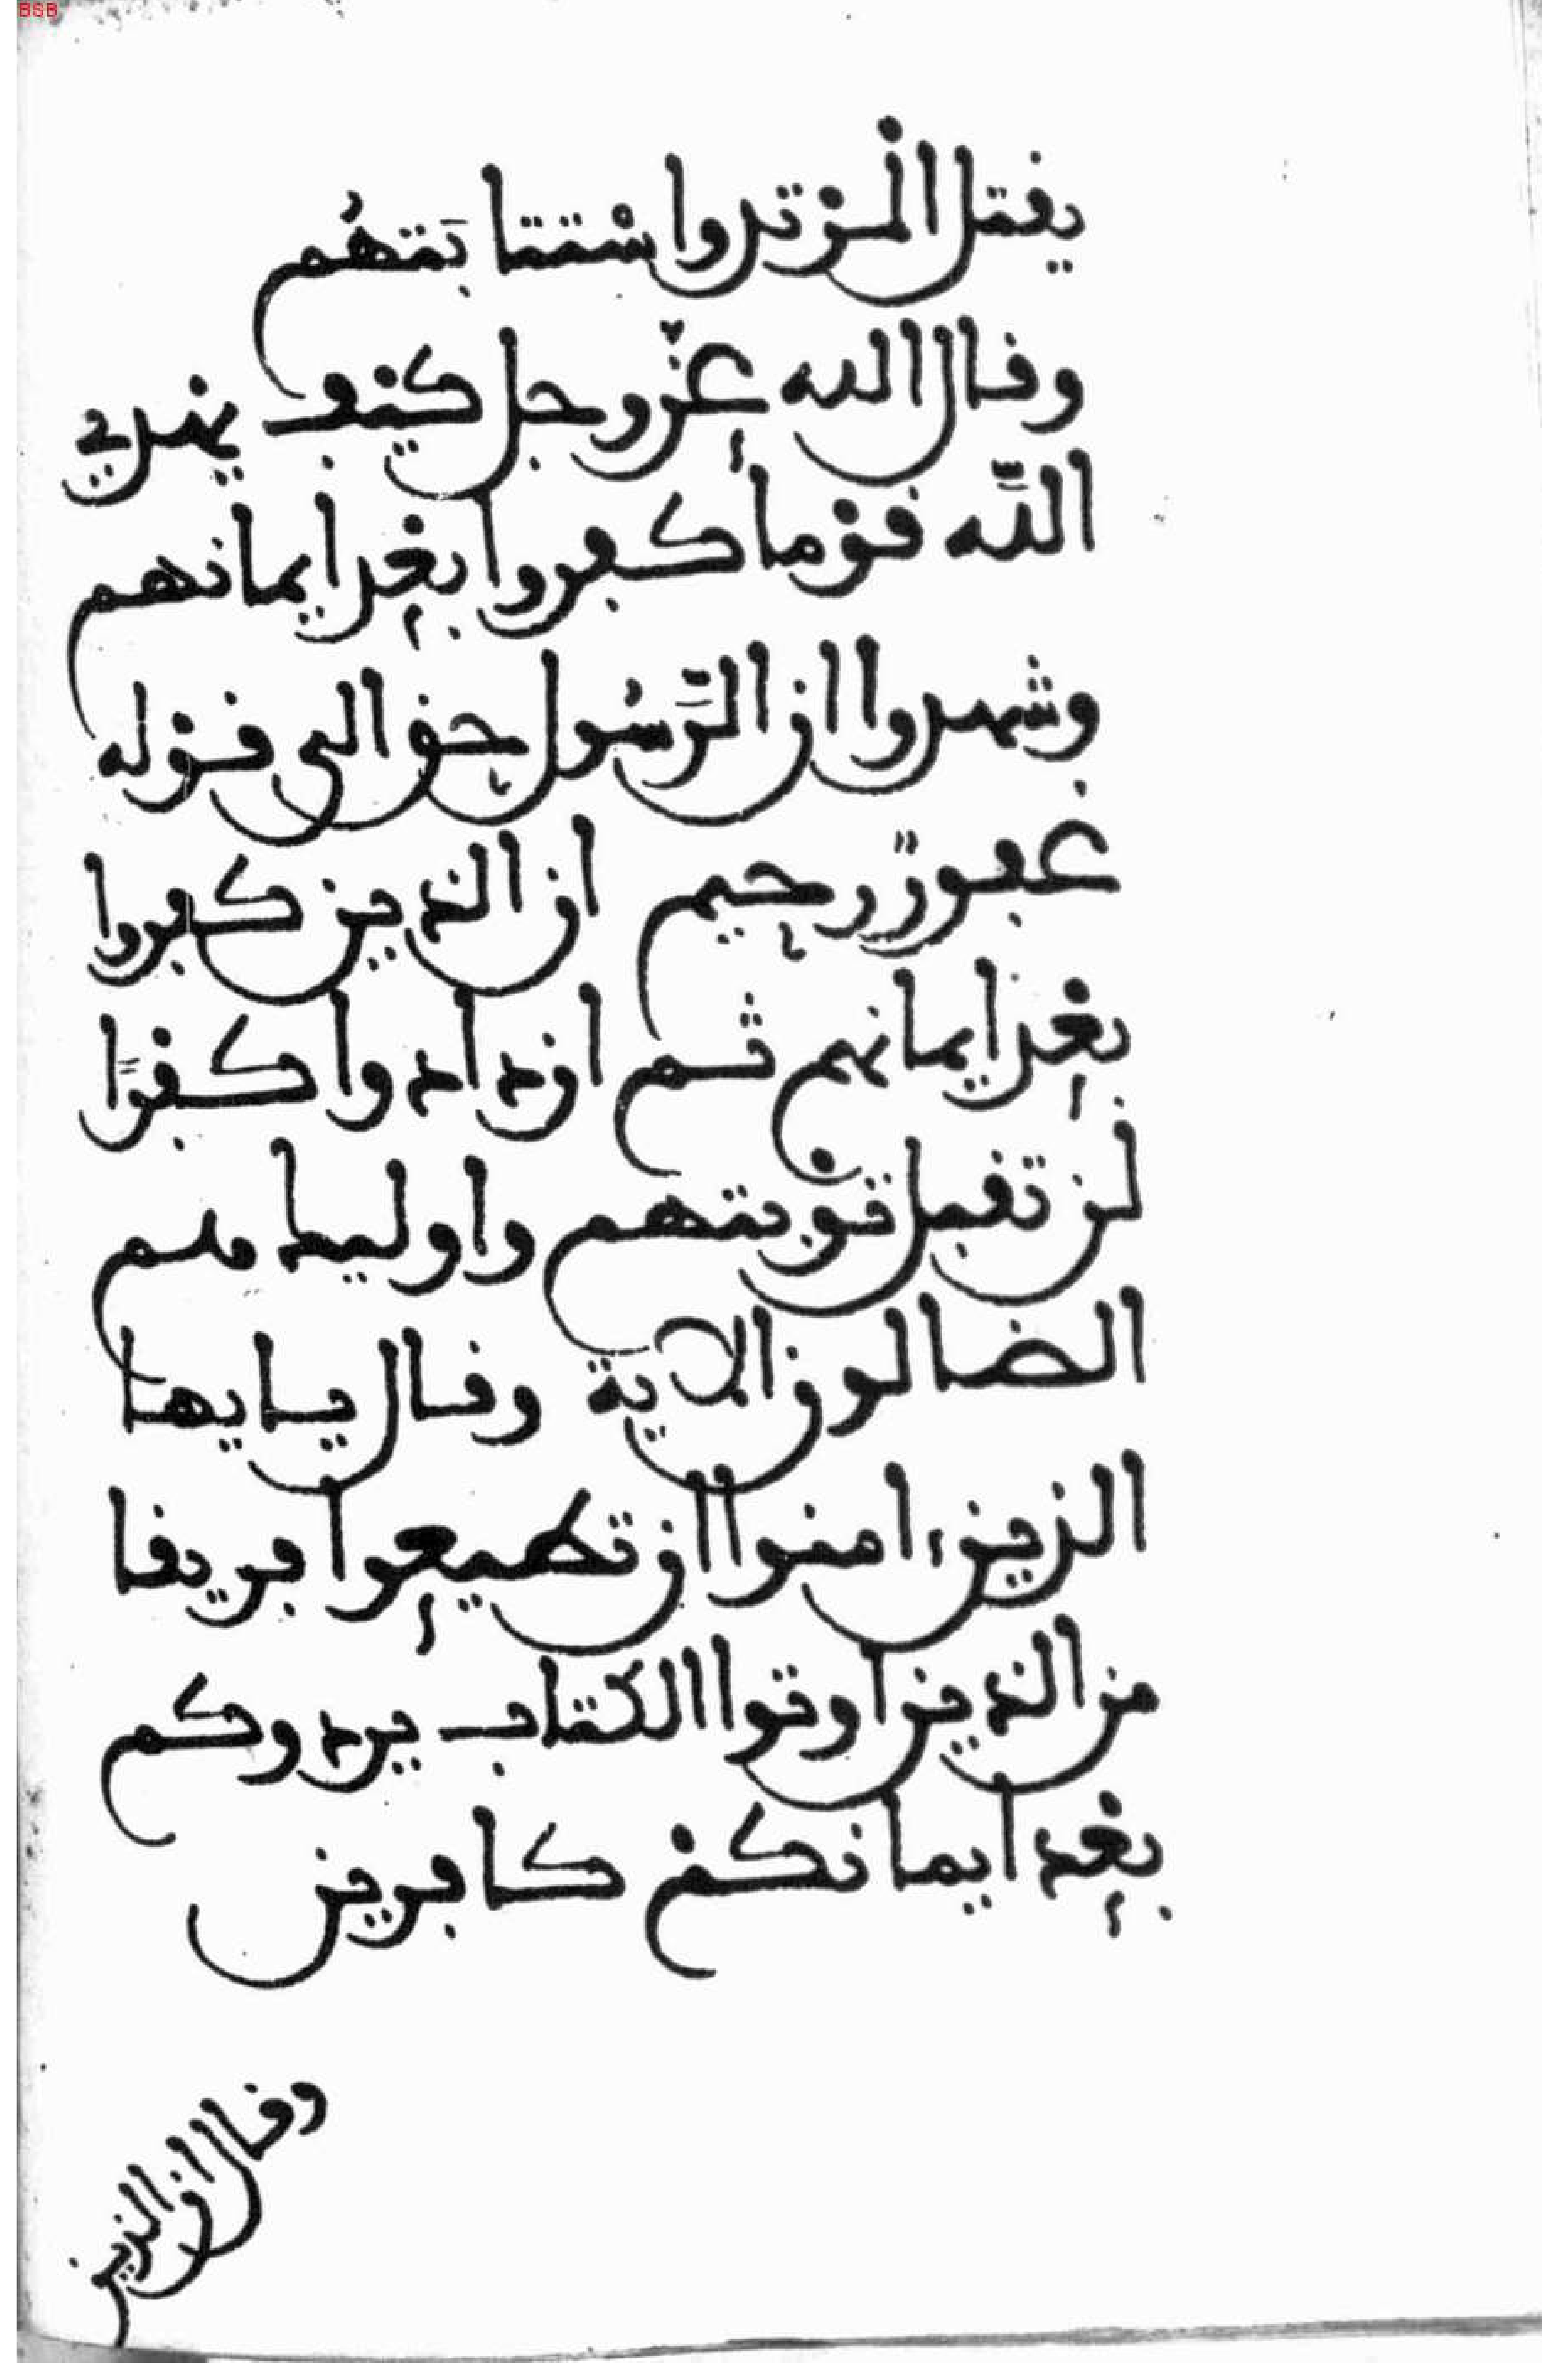 BSB
يقتل المرتد واسْتتابَتهُم
وقال الله عزّ وجل كيف يهدي
اللّه قوْما كفروا بعد ايمانهم
وشهدوا ان الرَّسُول حق الى قوله
غفورٌ رحيم ان الذين كفروا
بعد ايمانهم ثم ازدادوا كفرًا
لن تقبل توبتهم واوليك هم
الضالون الاية وقال يايها
الذين ءامنوا ان تطيعوا فريقا
من الذين اوتوا الكتاب يردوكم
بعد ايمانكم كافرين
وقال ان الذين